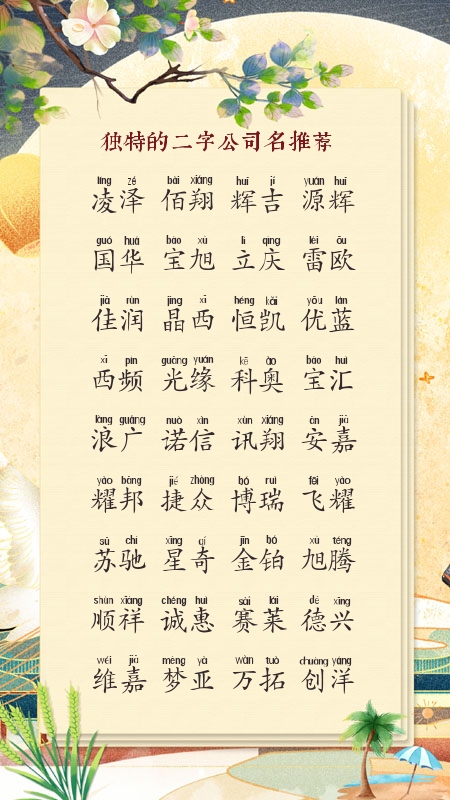 独特的二字公司名推荐
líng zé bǎi xiáng huī jí yuán huī
凌泽 佰翔 辉吉 源辉
guó huá bǎo xù lì qìng léi ōu
国华 宝旭 立庆 雷欧
jiā rùn jīng xī héng kǎi yōu lán
佳润 晶西 恒凯 优蓝
xī pín guāng yuán kē ào bǎo huì
西频 光缘 科奥 宝汇
làng guǎng nuò xìn xùn xiáng ān jiā
浪广 诺信 讯翔 安嘉
yào bāng jié zhòng bó ruì fēi yào
耀邦 捷众 博瑞 飞耀
sū chí xīng qí jīn bó xù téng
苏驰 星奇 金铂 旭腾
shùn xiáng chéng huì sài lái dé xīng
顺祥 诚惠 赛莱 德兴
wéi jiā mèng yà wàn tuò chuàng yáng
维嘉 梦亚 万拓 创洋